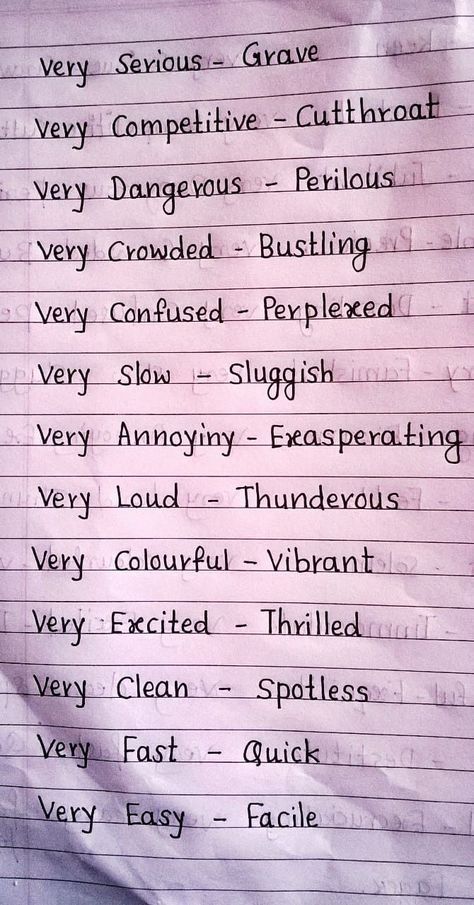 Very Serious - Grave
Very Competitive - Cutthroat
Very Dangerous - Perilous
Very Crowded - Bustling
Very Confused - Perplexed
Very Slow - Sluggish
Very Annoyiny - Exasperating
Very Loud - Thunderous
Very Colourful - Vibrant
Very Excited - Thrilled
Very Clean - Spotless
Very Fast - Quick
Very Easy - Facile